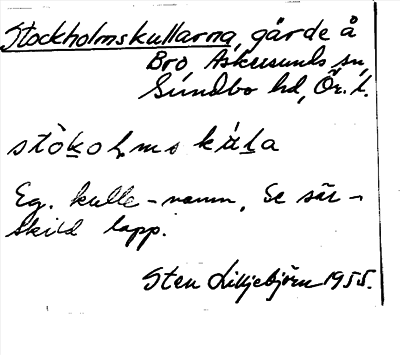 Stockholmskullarna, gärde å
Bro Askersunds sn,
Sundbo hd, Ör. l.
Eg. kulle-namn. Se sär-
skild lapp.
Sten Lilljebjörn 1955.